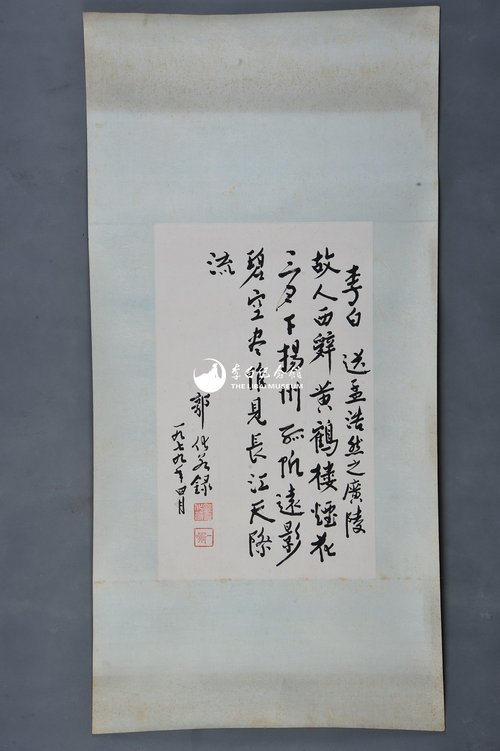 李白 送孟浩然之廣陵
故人西辭黃鶴樓煙花
三月下揚州孤帆遠影
碧空尽唯見長江天際
流
郭化若録
一九七九年四月
李白纪念馆
THE LIBAI MUSEUM